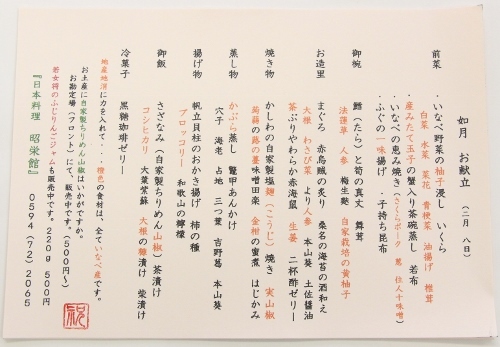 如月 お献立 (二月 八日)
前菜 ・いなべ野菜の柚子浸し いくら
白菜 水菜 菜花 青梗菜 油揚げ 椎茸
・産みたて玉子の蟹入り茶碗蒸し 若布
・いなべの恵み焼き(さくらポーク 葱 住人十味噌)
・ふぐの一味揚げ ・子持ち昆布
御椀 鱈(たら)と筍の真丈 舞茸
法蓮草 人参 梅生麩 自家栽培の黄柚子
お造里 まぐろ 赤烏賊の炙り 桑名の海苔の酒和え
大根 わさび菜 より人参 本山葵 土佐醤油
茶ぶりやわらか赤海鼠 生姜 二杯酢ゼリー
焼き物 かしわの自家製塩麹(こうじ)焼き 実山椒
蒟蒻の蕗の薹味噌田楽 金柑の蜜煮 はじかみ
蒸し物 かぶら蒸し 鼈甲あんかけ
穴子 海老 占地 三つ葉 吉野葛 本山葵
揚げ物 帆立貝柱のおかき揚げ 柿の種
ブロッコリー 和歌山の檸檬
御飯 さざなみ(自家製ちりめん山椒)茶漬け
コシヒカリ 大葉紫蘇 大根の糠漬け 柴漬け
冷菓子 黒糖珈琲ゼリー
地産地消に力を入れて・・・橙色の食材は、全ていなべ産です。
お土産に自家製ちりめん山椒はいかがですか。
お勘定場(フロント)にて、販売中です。(500円~)
若女将のふじりんごジャムも販売中です。220g 500円
『日本料理 昭栄館』 0594(72)2065